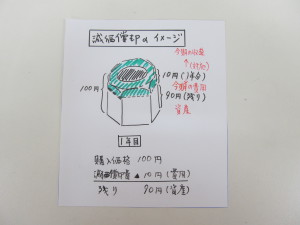 減価償却のイメージ
今期の収益
↑(対応)
10円(1年分)
今期の費用
100円
90円(残り)
資産
1年目
購入価格 100円
減価償却費 ▲10円(費用)
残り 90円(資産)